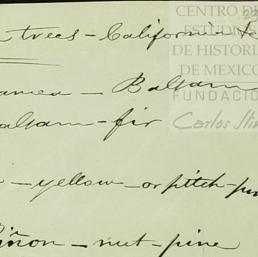 trees - California &
CENTRO DE
ESTUDIOS
DE HISTORIA
DE MEXICO
FUNDACIÓN
Carlos Slim
- Balsam
balsam - fir
- yellow - or pitch - pine
Piñon - nut - pine